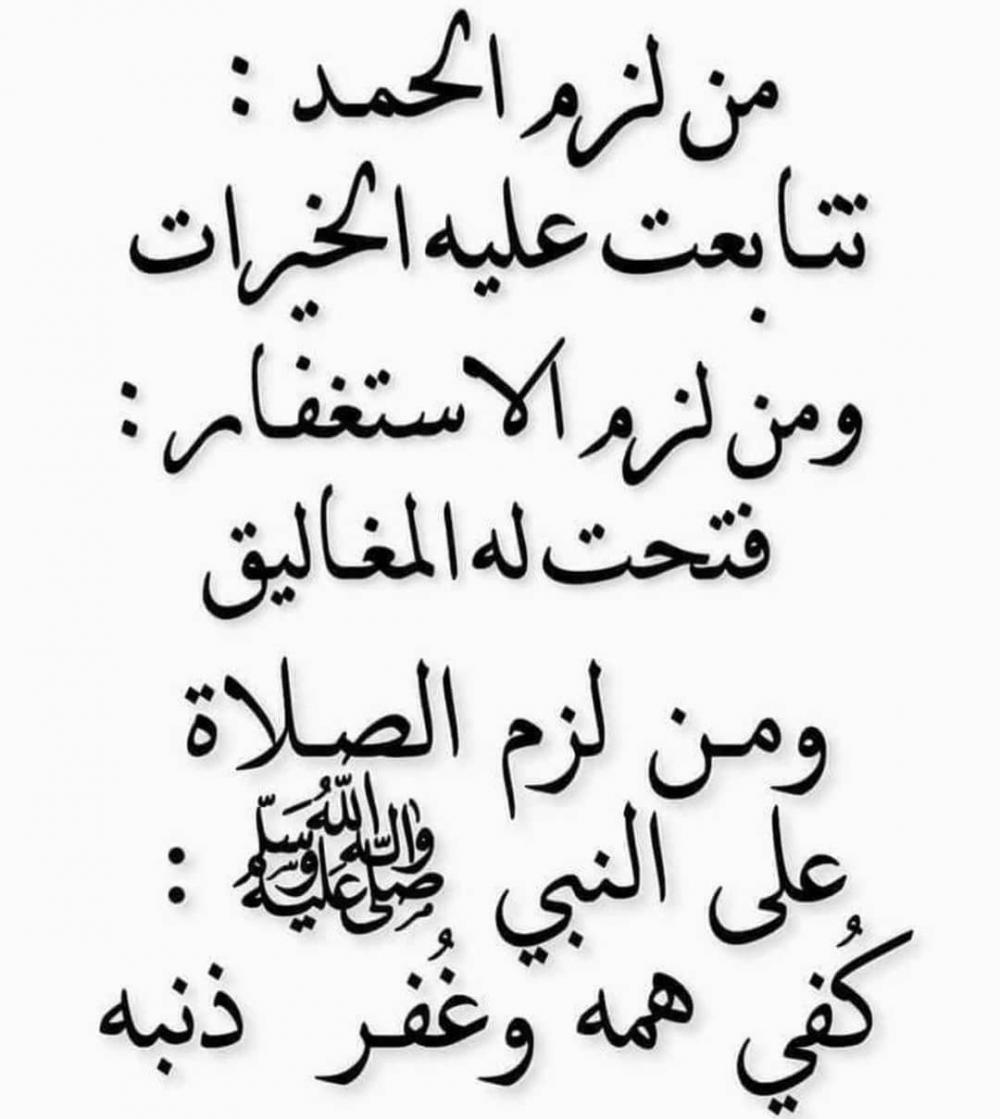 من لزم الحمد :
تتابعت عليه الخيرات
ومن لزم الاستغفار :
فتحت له المغاليق
ومن لزم الصلاة
على النبي صلى الله عليه وآله وسلم :
كُفي همه وغُفر ذنبه